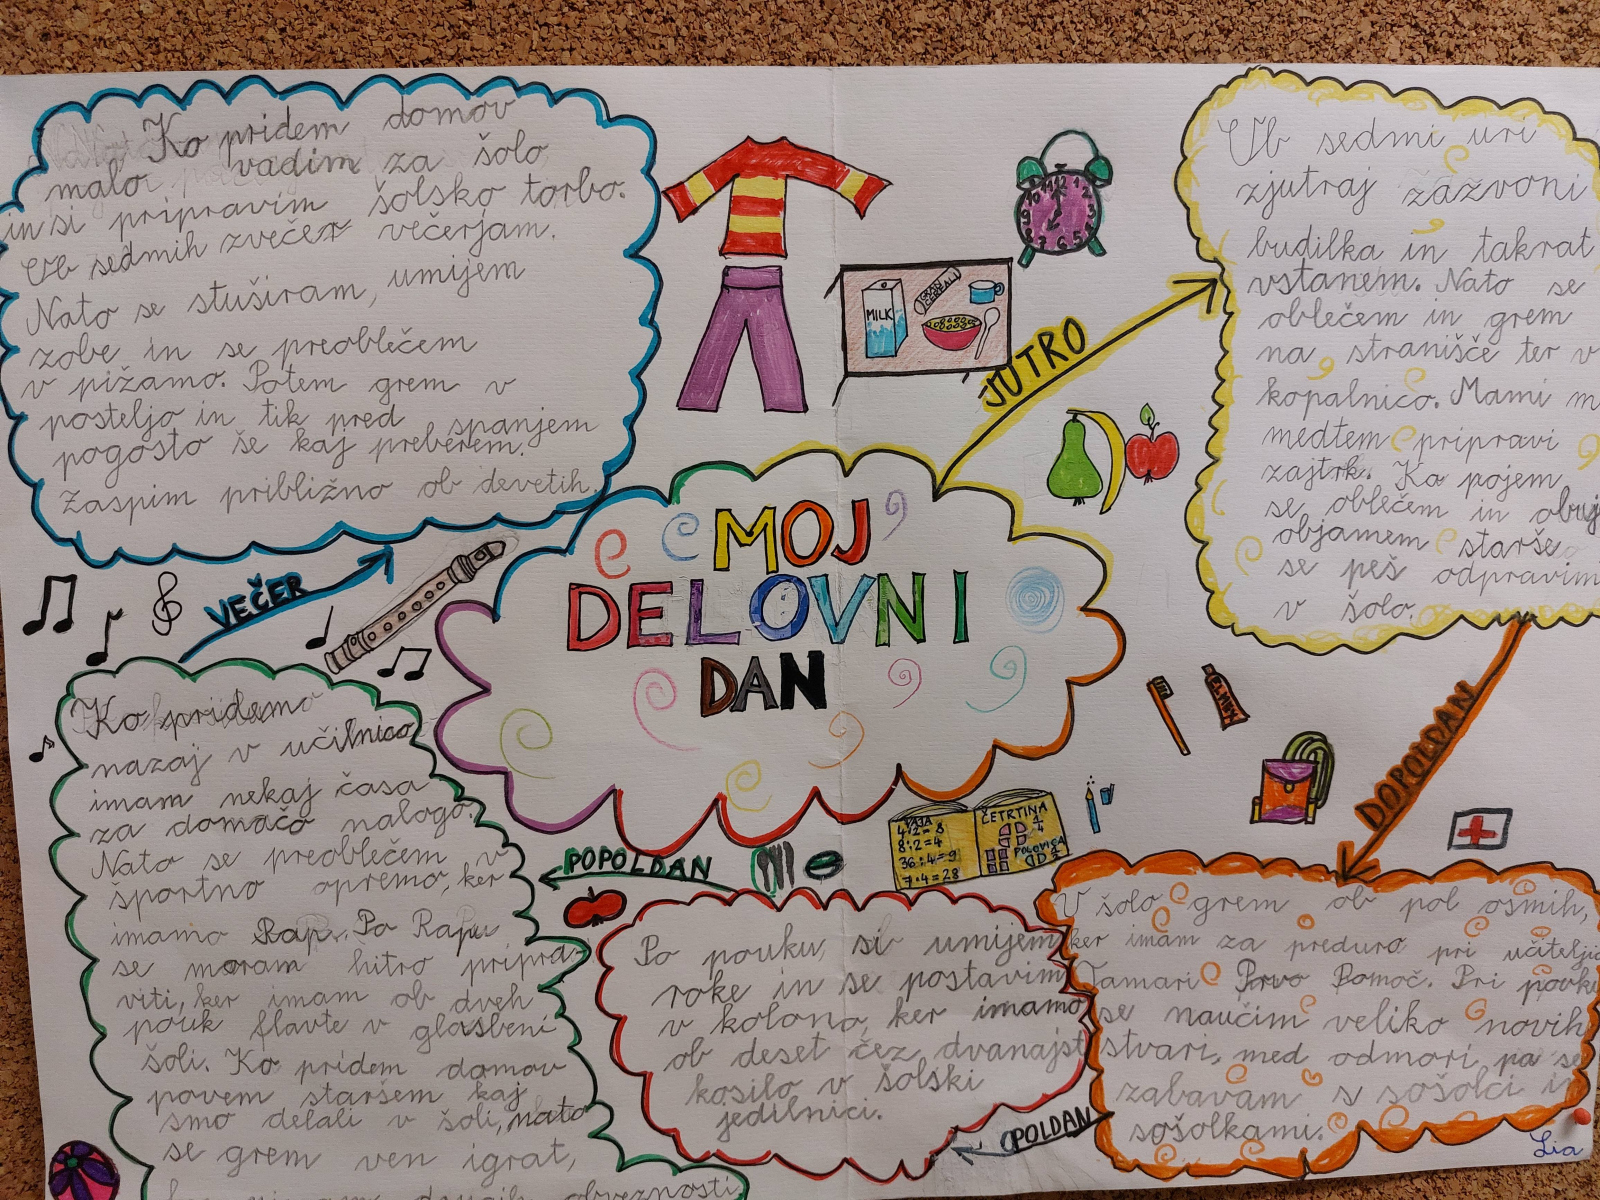 MOJ
DELOVNI
DAN
JUTRO
Ob sedmi uri
zjutraj zazvoni
budilka in takrat
vstanem. Nato se
oblečem in grem
na stranišče ter v
kopalnico. Mami m
medtem pripravi
zajtrk. Ko pojem
se oblečem in obuj
objamem starše
se peš odpravim
v šolo.
DOPOLDAN
V šolo grem ob pol osmih,
ker imam za preduro pri učiteljic
Tamari Prvo Pomoč. Pri pouku
se naučim veliko novih
stvari, med odmori, pa se
zabavam s sošolci in
sošolkami.
Lia
OPOLDAN
Po pouku, si umijem
roke in se postavim
v kolono, ker imamo
ob deset čez dvanajst
kosilo v šolski
jedilnici.
POPOLDAN
Ko pridemo
nazaj v učilnico
imam nekaj časa
za domačo nalogo.
Nato se preoblečem v
športno opremo, ker
imamo Rap. Po Rapu
se moram hitro pripra-
viti, ker imam ob dveh
pouk flavte v glasbeni
šoli. Ko pridem domov
povem staršem kaj
smo delali v šoli, nato
se grem ven igrat,
drugih obveznosti
VEČER
Ko pridem domov
malo vadim za šolo
in si pripravim šolsko torbo.
Ob sedmih zvečer večerjam.
Nato se stuširam, umijem
zobe in se preoblečem
v pižamo. Potem grem v
posteljo in tik pred spanjem
pogosto še kaj preberem.
Zaspim približno ob devetih.
MILK
CEREALI
VAJA
4·2=8
8:2=4
36:4=9
7·4=28
ČETRTINA
1/4
POLOVICA